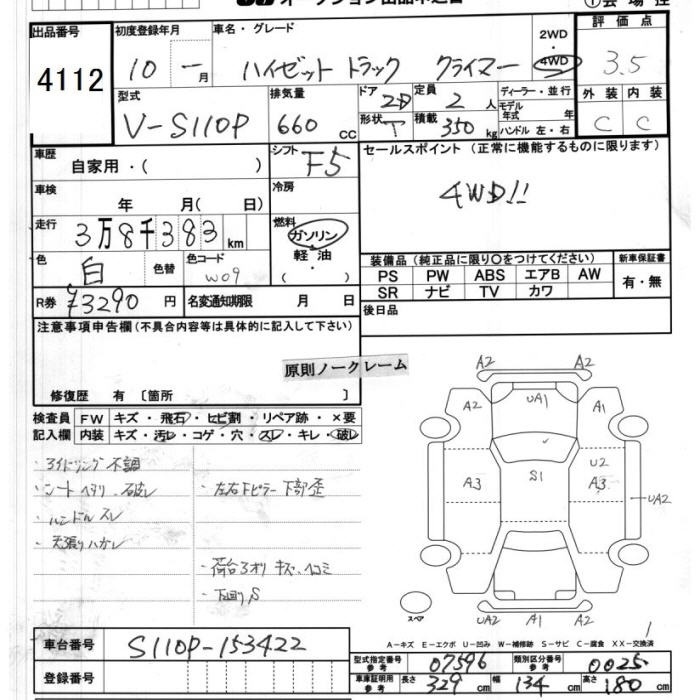 オークション出品申込書
出品番号 初度登録年月 車名・グレード 2WD 評価点
4112 10 ー 月 ハイゼットトラック クライマー 4WD 3.5
型式 排気量 ドア 定員 ディーラー・並行 外装 内装
V-S110P 660 cc 2D 2 人 モデル年式 年 C C
形状 T 積載 350 kg ハンドル 左・右
車歴 自家用・( ) シフト F5 セールスポイント(正常に機能するものに限ります)
車検 年 月( 日) 冷房 4WD!!
走行 3万8千383 km 燃料 ガソリン
色 白 色替 色コード W09 軽油 ・( )
装備品(純正品に限り○をつけてください) 新車保証書
PS PW ABS エアB AW 有・無
SR ナビ TV カワ
R券 ¥3290 円 名変通知期限 月 日 後日品
注意事項申告欄(不具合内容等は具体的に記入して下さい)
原則ノークレーム
修復歴 有 〔箇所 〕
検査員 FW キズ・飛石・ヒビ割・リペア跡・×要
記入欄 内装 キズ・汚レ・コゲ・穴・スレ・キレ・破レ
・アイドリング不調
・シートヘタリ、破レ
・左右Fピラー下部歪
・ハンドルスレ
・天張りハガレ
・荷台3オリ キズ、ヘコミ
・下回りS
A2 A2
A2 UA1 A1
U2
A3 S1 A3 UA2
スペア
UA2 A1 A2
1
A-キズ E-エクボ U-凹み W-補修跡 S-サビ C-腐食 XX-交換済
車台番号 S110P-153422
登録番号
型式指定番号 参考 07596 類別区分番号 参考 0025
車庫証明用 参考 長さ 329 cm 幅 134 cm 高さ 180 cm